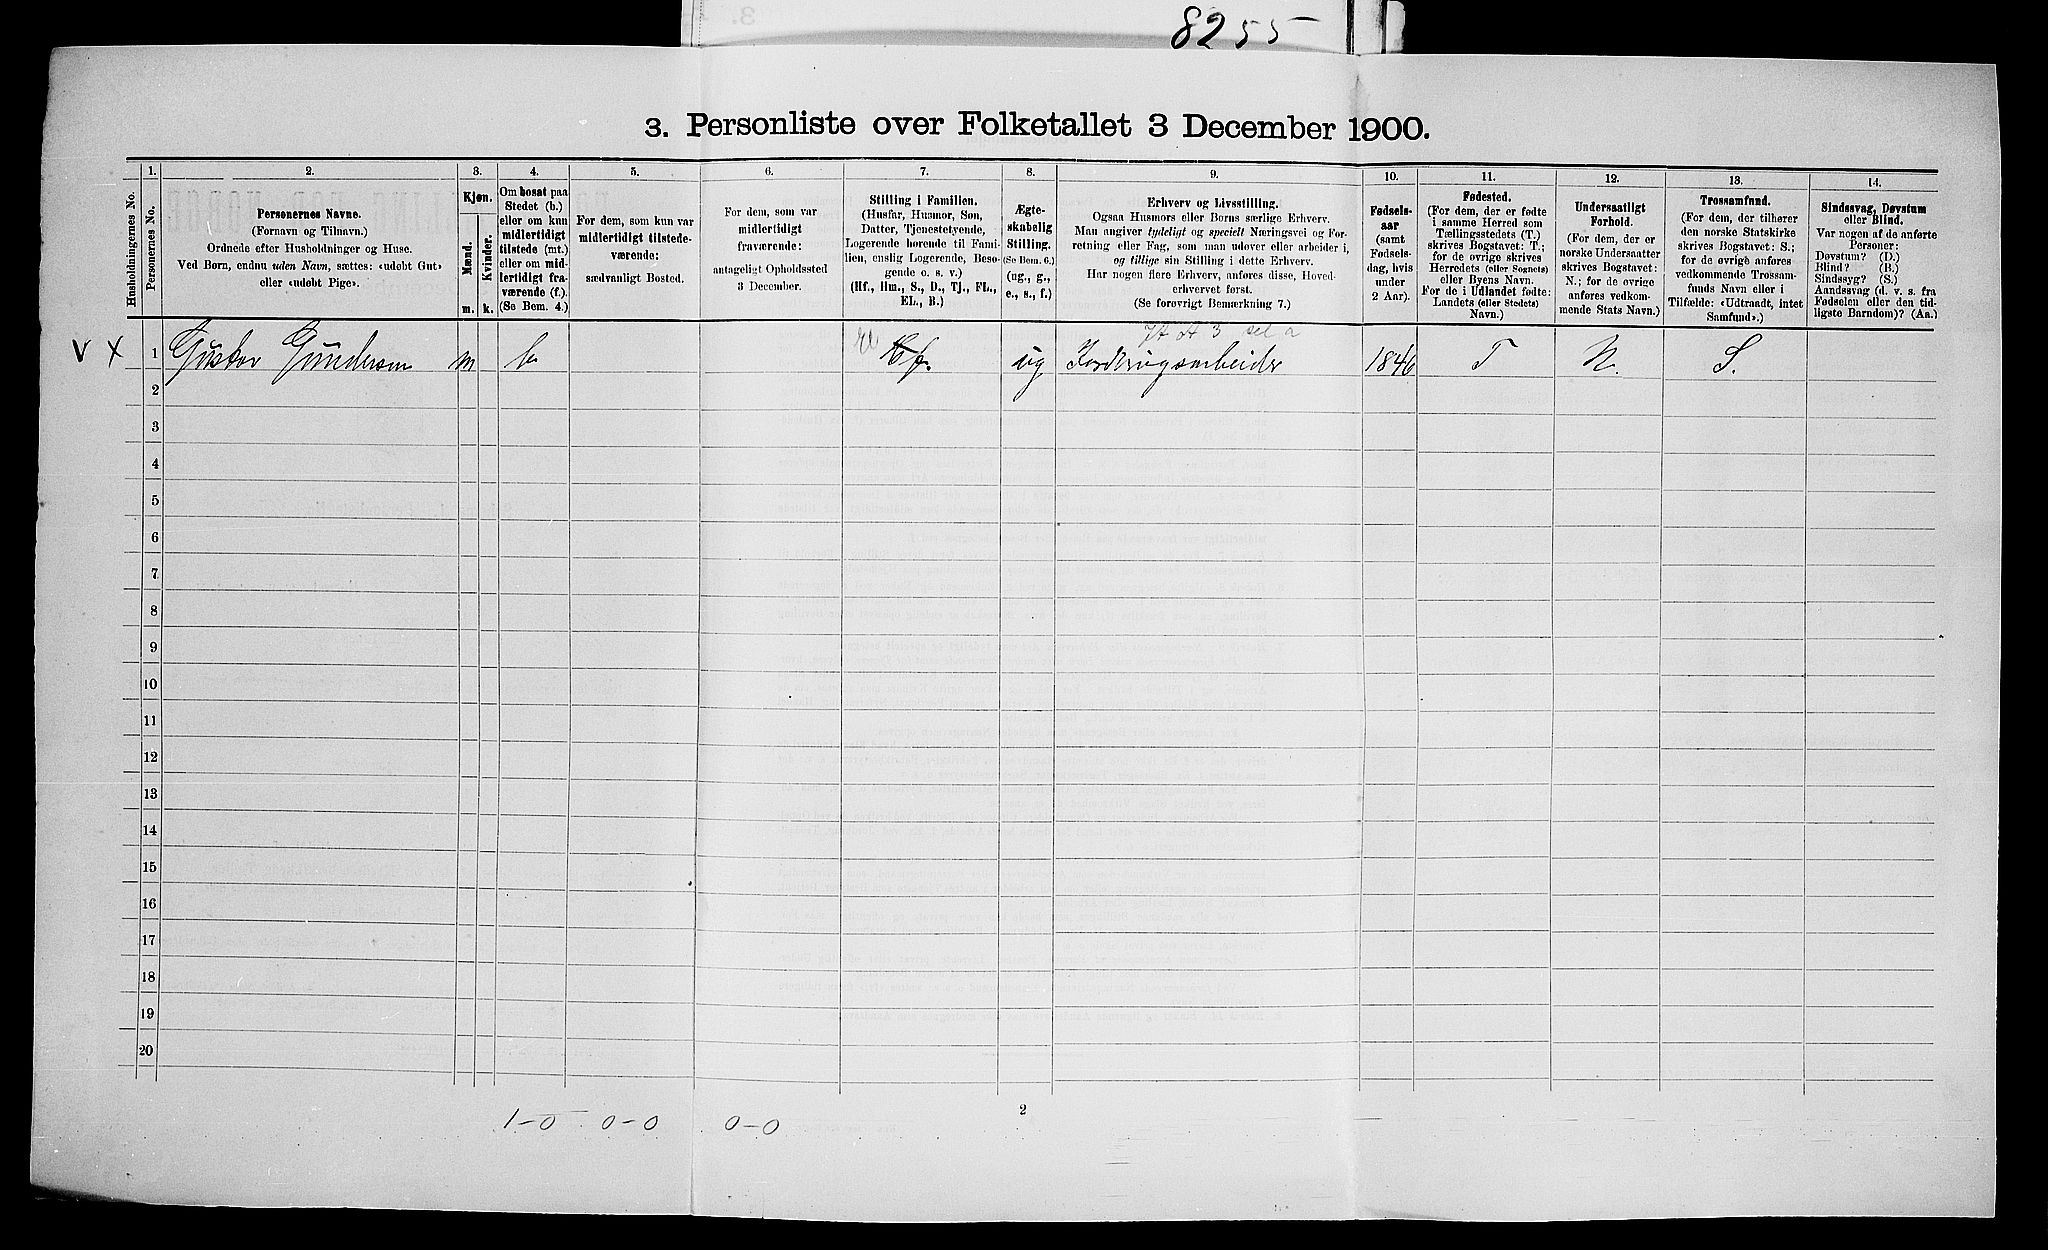 8255
3. Personliste over Folketallet 3 December 1900.
Husholdningernes No.
1.
Personernes No.
2.
Personernes Navne.
(Fornavn og Tilnavn.)
Ordnede efter Husholdninger og Huse.
Ved Børn, endnu uden Navn, sættes: «udøbt Gut»
eller «udøbt Pige».
3.
Kjøn.
Mænd.
Kvinder.
m. k.
4.
Om bosat paa
Stedet (b.)
eller om kun
midlertidigt
tilstede (mt.)
eller om mid-
lertidigt fra-
værende (f.).
(Se Bem. 4.)
5.
For dem, som kun var
midlertidigt tilstede-
værende:
sædvanligt Bosted.
6.
For dem, som var
midlertidigt
fraværende:
antageligt Opholdssted
3 December.
7.
Stilling i Familien.
(Husfar, Husmor, Søn,
Datter, Tjenestetyende,
Logerende hørende til Fami-
lien, enslig Logerende, Besø-
gende o. s. v.)
(Hf., Hm., S., D., Tj., FL.,
EL., B.)
8.
Ægte-
skabelig
Stilling.
(Se Bem. 6.)
(ug., g.,
e., s., f.)
9.
Erhverv og Livsstilling.
Ogsaa Husmors eller Børns særlige Erhverv.
Man angiver tydeligt og specielt Næringsvei og For-
retning eller Fag, som man udøver eller arbeider i,
og tillige sin Stilling i dette Erhverv.
Har nogen flere Erhverv, anføres disse, Hoved-
erhvervet først.
(Se forøvrigt Bemærkning 7.)
10.
Fødsels-
aar
(samt
Fødsels-
dag, hvis
under
2 Aar).
11.
Fødested.
(For dem, der er fødte
i samme Herred som
Tællingsstedets (T.)
skrives Bogstavet: T.;
for de øvrige skrives
Herredets (eller Sognets)
eller Byens Navn.
For de i Udlandet fødte:
Landets (eller Stedets)
Navn.)
12.
Undersaatligt
Forhold.
(For dem, der er
norske Undersaatter
skrives Bogstavet:
N.; for de øvrige
anføres vedkom-
mende Stats Navn.)
13.
Trossamfund.
(For dem, der tilhører
den norske Statskirke
skrives Bogstavet: S.;
for de øvrige anføres
vedkommende Trossam-
funds Navn eller i
Tilfælde: «Udtraadt, intet
Samfund».)
14.
Sindssvag, Døvstum
eller Blind.
Var nogen af de anførte
Personer:
Døvstum? (D.)
Blind? (B.)
Sindssyg? (S.)
Aandssvag (d. v. s. fra
Fødselen eller den tid-
ligste Barndom)? (Aa.)
V X 1 Gustav Gundersen m b. ug Jordbrugsarbeider 1846 T N. S.
2
3
4
5
6
7
8
9
10
11
12
13
14
15
16
17
18
19
20
1-0 0-0 0-0
2